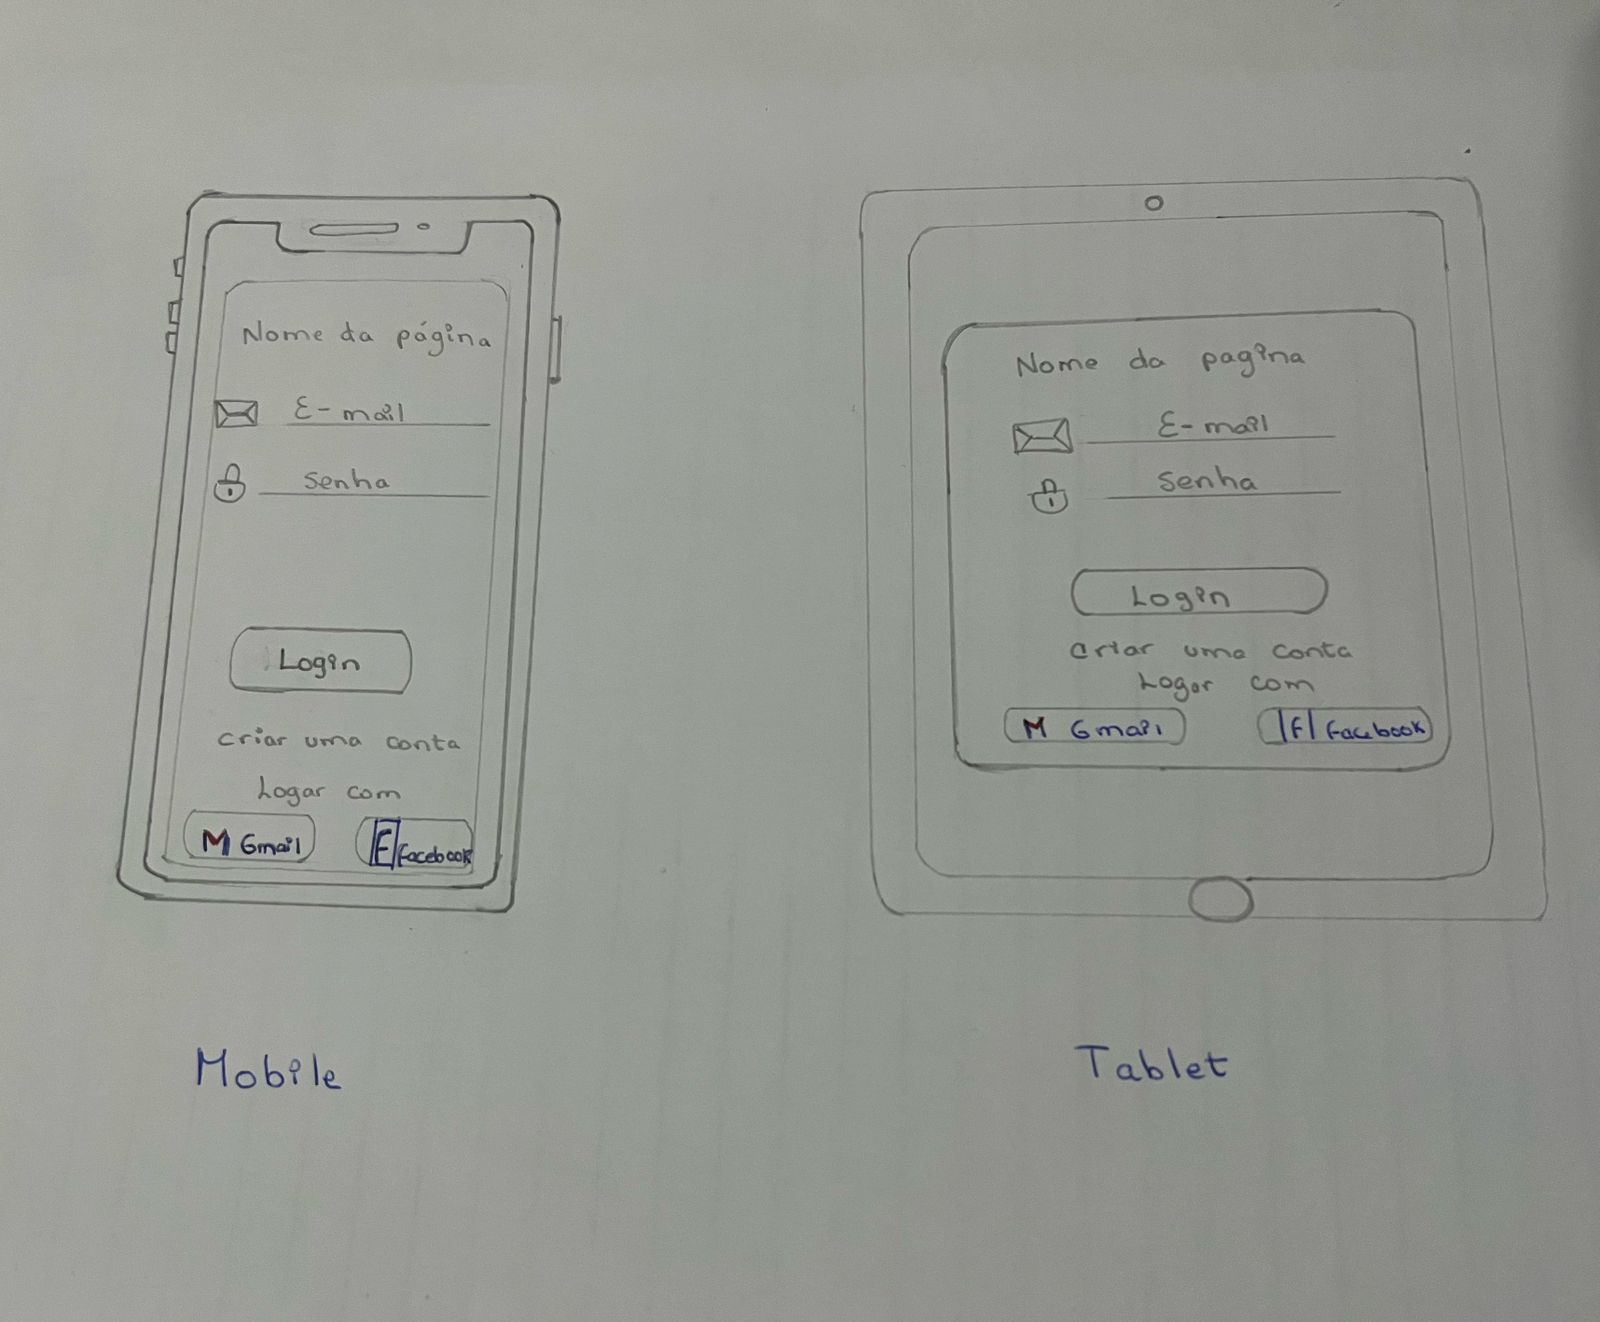 Nome da página
E-mail
senha
Login
criar uma conta
Logar com
M Gmail
F facebook
Mobile
Nome da pagina
E-mail
senha
Login
criar uma conta
Logar com
M Gmail
F facebook
Tablet